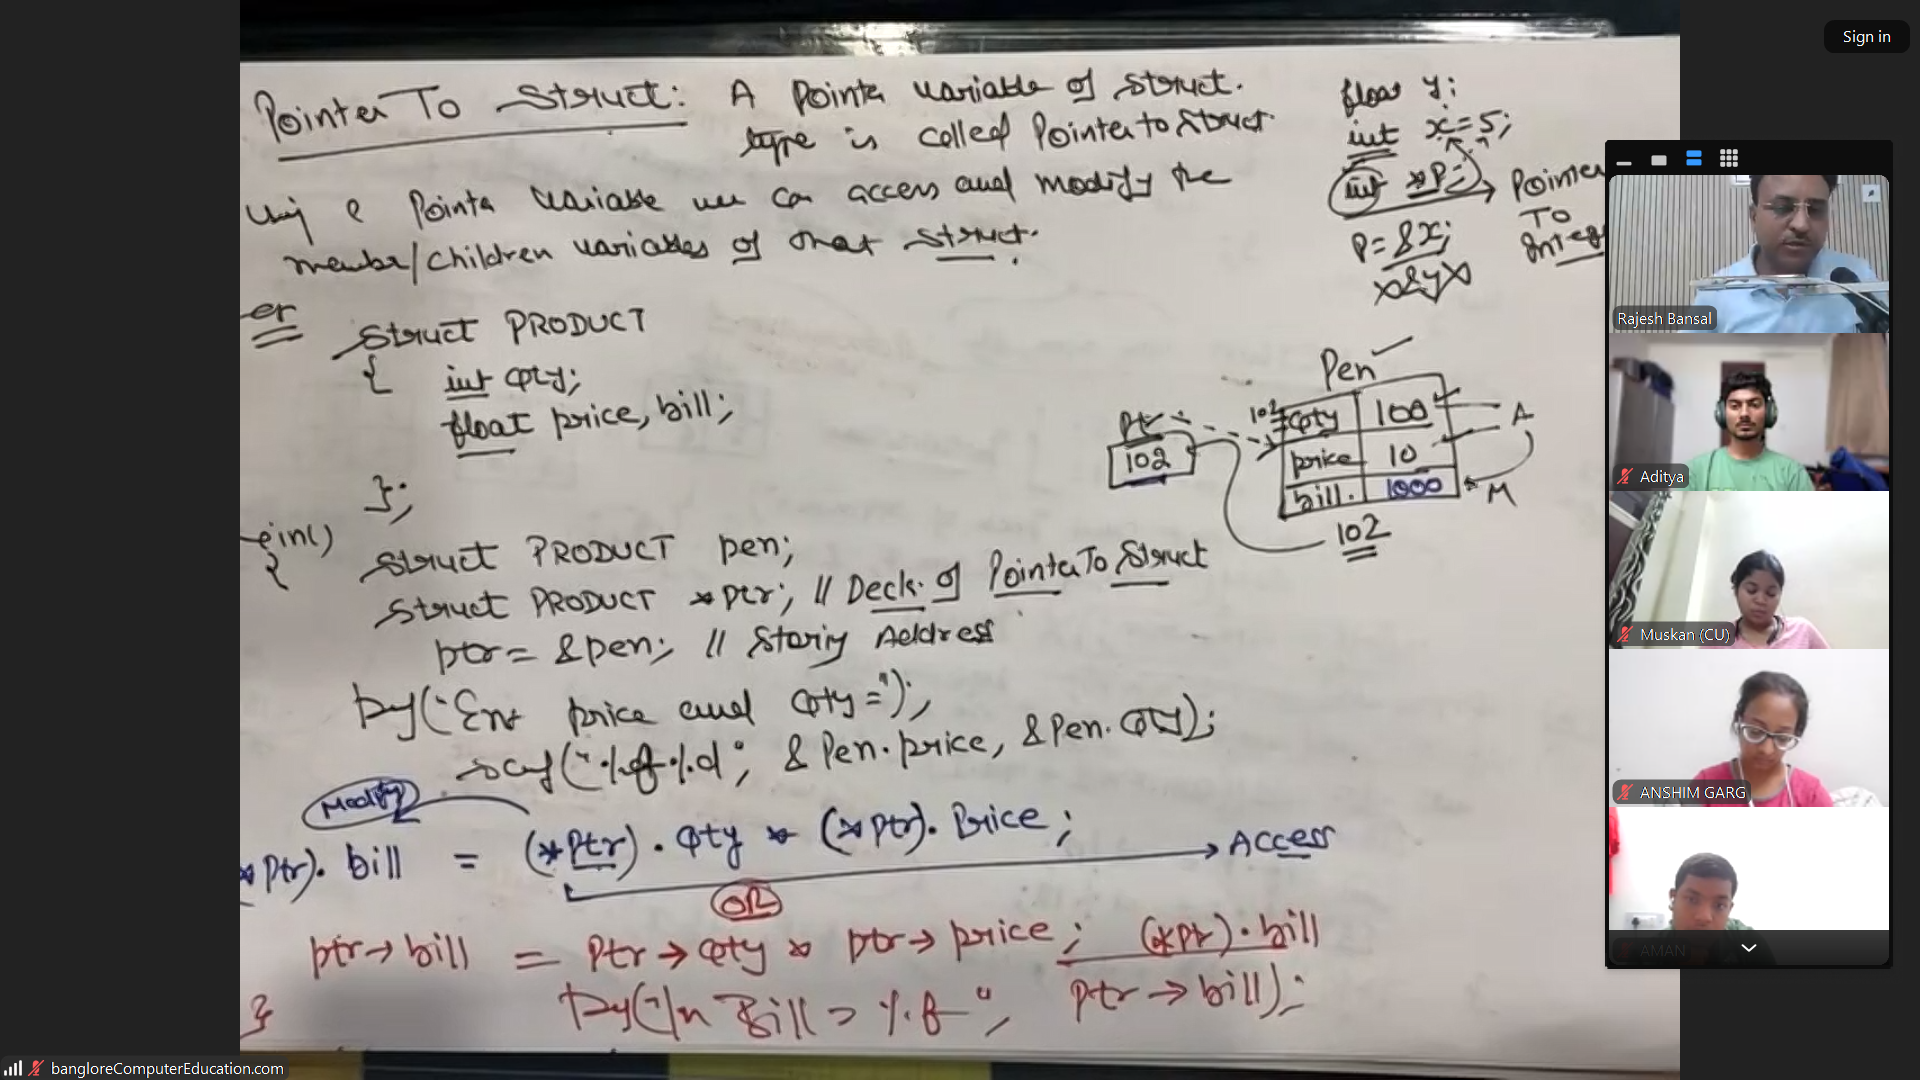 Sign in
Pointer To Struct: A Pointer variable of struct.
type is called Pointer to Struct.
Using a Pointer variable we can access and modify the
member/children variables of that struct.
float y;
int x=5;
int *P;
Pointer
To
P=&x;
x&yx
struct PRODUCT
{ int qty;
float price, bill;
};
Pen
Ptr
102
102
qty 100
price 10
bill. 1000
A
M
102
{
struct PRODUCT pen;
struct PRODUCT *ptr; // Decl. of Pointer To Struct
ptr = &pen; // Storing Address
Pf("Ent price and qty=");
scanf("%f%d", &Pen.price, &Pen.qty);
Modify
*Ptr).bill = (*Ptr).qty * (*Ptr).Price;
Access
OR
ptr→bill = Ptr→qty * ptr→price; (*ptr).bill
Pf("\n Bill = %f", ptr→bill);
}
Rajesh Bansal
Aditya
Muskan (CU)
ANSHIM GARG
AMAN
bangloreComputerEducation.com